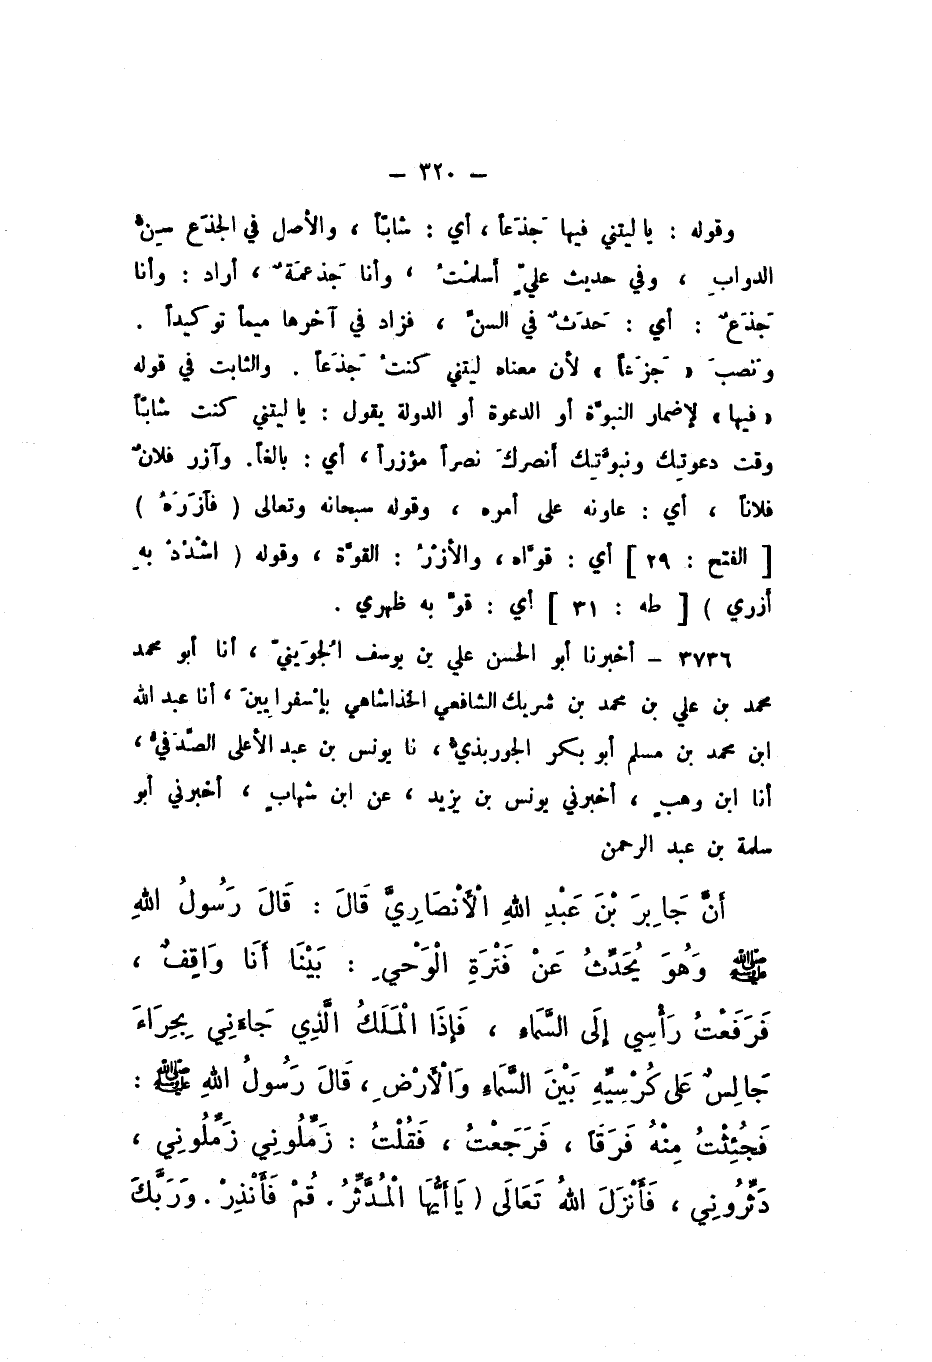 – ٣٢٠ –
وقوله : يا ليتني فيها جَذَعاً ، أي : شابّاً ، والأصل في الجذَع سِنُّ
الدواب ، وفي حديث عليٍّ أسلمتُ ، وأنا جَذعمَةٌ ، أراد : وأنا
جَذعٌ : أي : حَدَثٌ في السنّ ، فزاد في آخرها ميماً توكيداً .
ونصبَ « جَزَعاً » لأن معناه ليتني كنتُ جَذَعاً . والثابت في قوله
« فيها » لإضمار النبوّة أو الدعوة أو الدولة يقول : يا ليتني كنت شابّاً
وقت دعوتِك ونبوّتِك أنصركَ نصراً مؤزراً ، أي : بالغاً. وآزر فلانٌ
فلاناً ، أي : عاونه على أمره ، وقوله سبحانه وتعالى ( فآزَرَهُ )
[ الفتح : ٢٩ ] أي : قوّاه ، والأزْرُ : القوّة ، وقوله ( اشْدُدْ بِهِ
أزري ) [ طه : ٣١ ] أي : قوِّ به ظهري .
٣٧٣٦ – أخبرنا أبو الحسن علي بن يوسف الجُوَينيّ ، أنا أبو محمد
محمد بن علي بن محمد بن شريك الشافعي الخذاشاهي بإسفرايينَ ، أنا عبد الله
ابن محمد بن مسلم أبو بكر الجوربذيُّ ، نا يونس بن عبد الأعلى الصَّدَفيُّ ،
أنا ابن وهبٍ ، أخبرني يونس بن يزيد ، عن ابن شهابٍ ، أخبرني أبو
سلمة بن عبد الرحمن
أنَّ جَابِرَ بْنَ عَبْدِ اللهِ الْأَنْصَارِيَّ قَالَ : قَالَ رَسُولُ اللهِ
ﷺ وَهُوَ يُحَدِّثُ عَنْ فَتْرَةِ الْوَحْيِ : بَيْنَا أَنَا وَاقِفٌ ،
فَرَفَعْتُ رَأْسِي إِلَى السَّمَاءِ ، فَإِذَا الْمَلَكُ الَّذِي جَاءَنِي بِحِرَاءَ
جَالِسٌ عَلَى كُرْسِيِّهِ بَيْنَ السَّمَاءِ وَالْأَرْضِ ، قَالَ رَسُولُ اللهِ ﷺ :
فَجُئِثْتُ مِنْهُ فَرَقَاً ، فَرَجَعْتُ ، فَقُلْتُ : زَمِّلُونِي زَمِّلُونِي ،
دَثِّرُونِي ، فَأَنْزَلَ اللهُ تَعَالَى ( يَاأَيُّهَا الْمُدَّثِّرُ . قُمْ فَأَنْذِرْ . وَرَبَّكَ